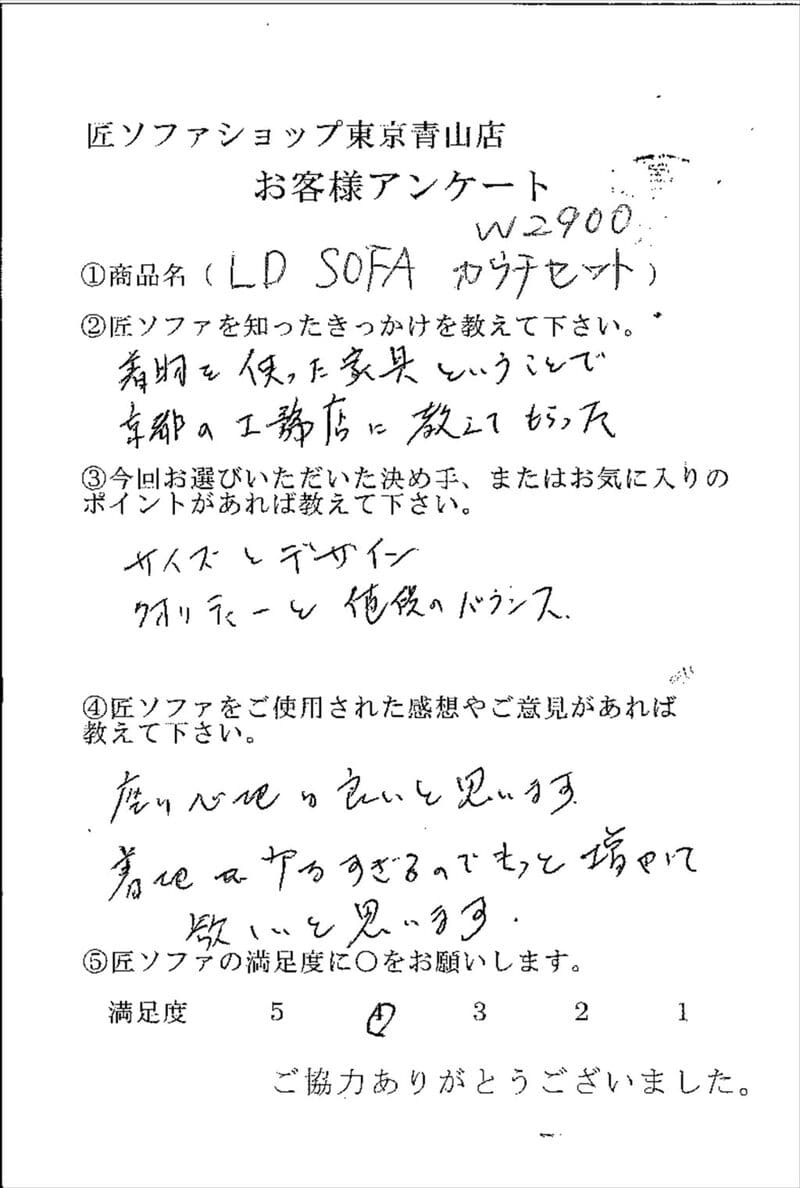 匠ソファショップ東京青山店
お客様アンケート
W2900
①商品名（LD SOFA カウチセット）
②匠ソファを知ったきっかけを教えて下さい。
着羽を使った家具ということで
京都の工務店に教えてもらった
③今回お選びいただいた決め手、またはお気に入りの
ポイントがあれば教えて下さい。
サイズとデザイン
クオリティーと値段のバランス.
④匠ソファをご使用された感想やご意見があれば
教えて下さい。
座り心地は良いと思います
着地が すぎるのでもっと増やして
欲しいと思います.
⑤匠ソファの満足度に〇をお願いします。
満足度 5 4 3 2 1
ご協力ありがとうございました。